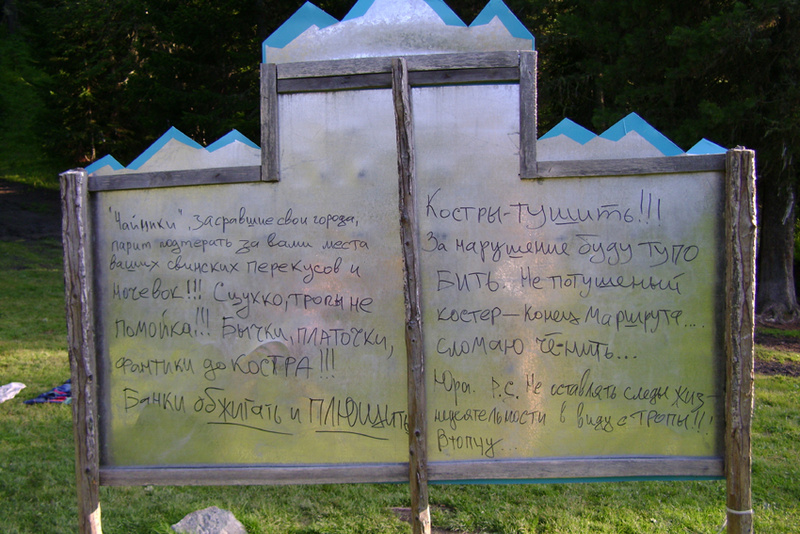 "Чайники", засравшие свои города,
парит подтерать за вами места
ваших свинских перекусов и
ночевок!!! Сцукко, тропы не
помойка!!! Бычки, платочки,
фантики до КОСТРА!!!
Банки обжигать и ПЛЮЩИТЬ
Костры-тушить!!!
За нарушение буду тупо
БИТЬ. Не потушеный
костер-конец маршрута....
сломаю чё-нить...
Юра. P.S. Не оставлять следы жиз-
недеятельности в виду с тропы!!!
Втопчу...